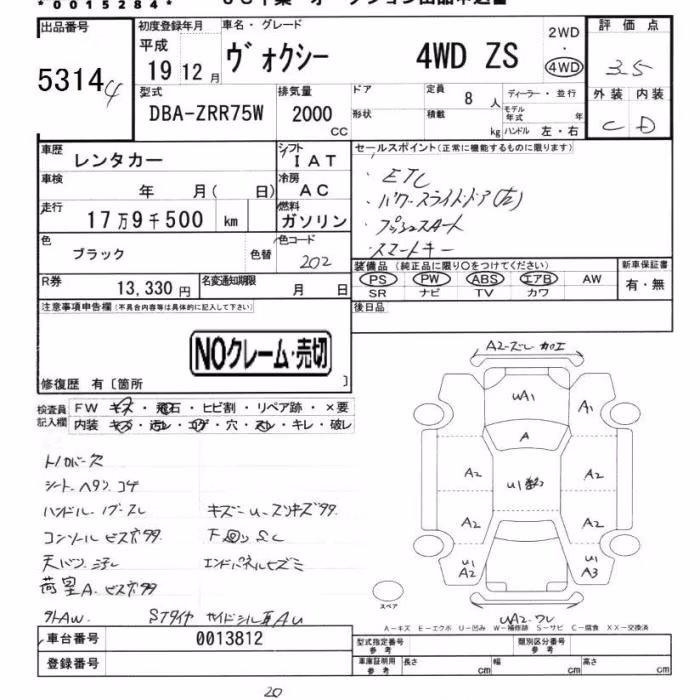 *0015284*
出品番号 5314 4
初度登録年月 平成 19 12 月
車名・グレード ヴォクシー 4WD ZS
2WD ・ 4WD
評価点 3.5
外装 内装
C D
型式 DBA-ZRR75W
排気量 2000 CC
ドア 形状
定員 8 人
積載 kg
ディーラー・並行
モデル年式 年
ハンドル 左・右
車歴 レンタカー
シフト IAT
車検 年 月( 日)
冷房 AC
走行 17万9千500 km
燃料 ガソリン
色 ブラック 色替
色コード 202
R券 13,330 円
名変通知期限 月 日
セールスポイント(正常に機能するものに限ります)
・ETC
・パワースライドドア(左)
・プッシュスタート
・スマートキー
装備品(純正品に限り○をつけてください)
PS PW ABS エアB AW
SR ナビ TV カワ
新車保証書
有・無
後日品
注意事項申告欄(不具合内容等は具体的に記入して下さい)
NOクレーム・売切
修復歴 有〔箇所 〕
検査員記入欄
FW キズ・飛石・ヒビ割・リペア跡・×要
内装 キズ・汚レ・コゲ・穴・スレ・キレ・破レ
トノカバー欠
シートヘタリ.コゲ
ハンドル.ノブ.スレ
キズー.u.スリキズ多々
コンソールビス穴多々
下回りS.C
天バリ.汚レ
エンドパネルヒズミ
荷室A.ビス穴多々
外AW.
STタイヤ
サイドシル
A2-ズレ 加工
uA1
A1
A
A2
u1多数
A2
A2
A2
u1
A2
u1
A3
uA2.ワレ
スペア
A−キズ E−エクボ U−凹み W−補修跡 S−サビ C−腐食 XX−交換済
車台番号 0013812
登録番号
型式指定番号 参考
類別区分番号 参考
車庫証明用 参考
長さ cm
幅 cm
高さ cm
20